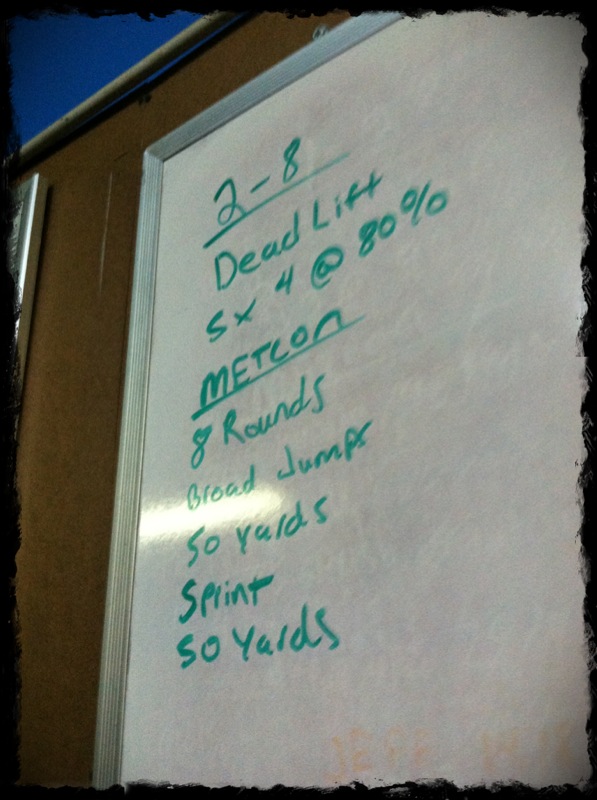 2-8
Dead Lift
5x 4 @ 80%
METCON
8 Rounds
Broad Jumps
50 Yards
Sprint
50 Yards
JEFF